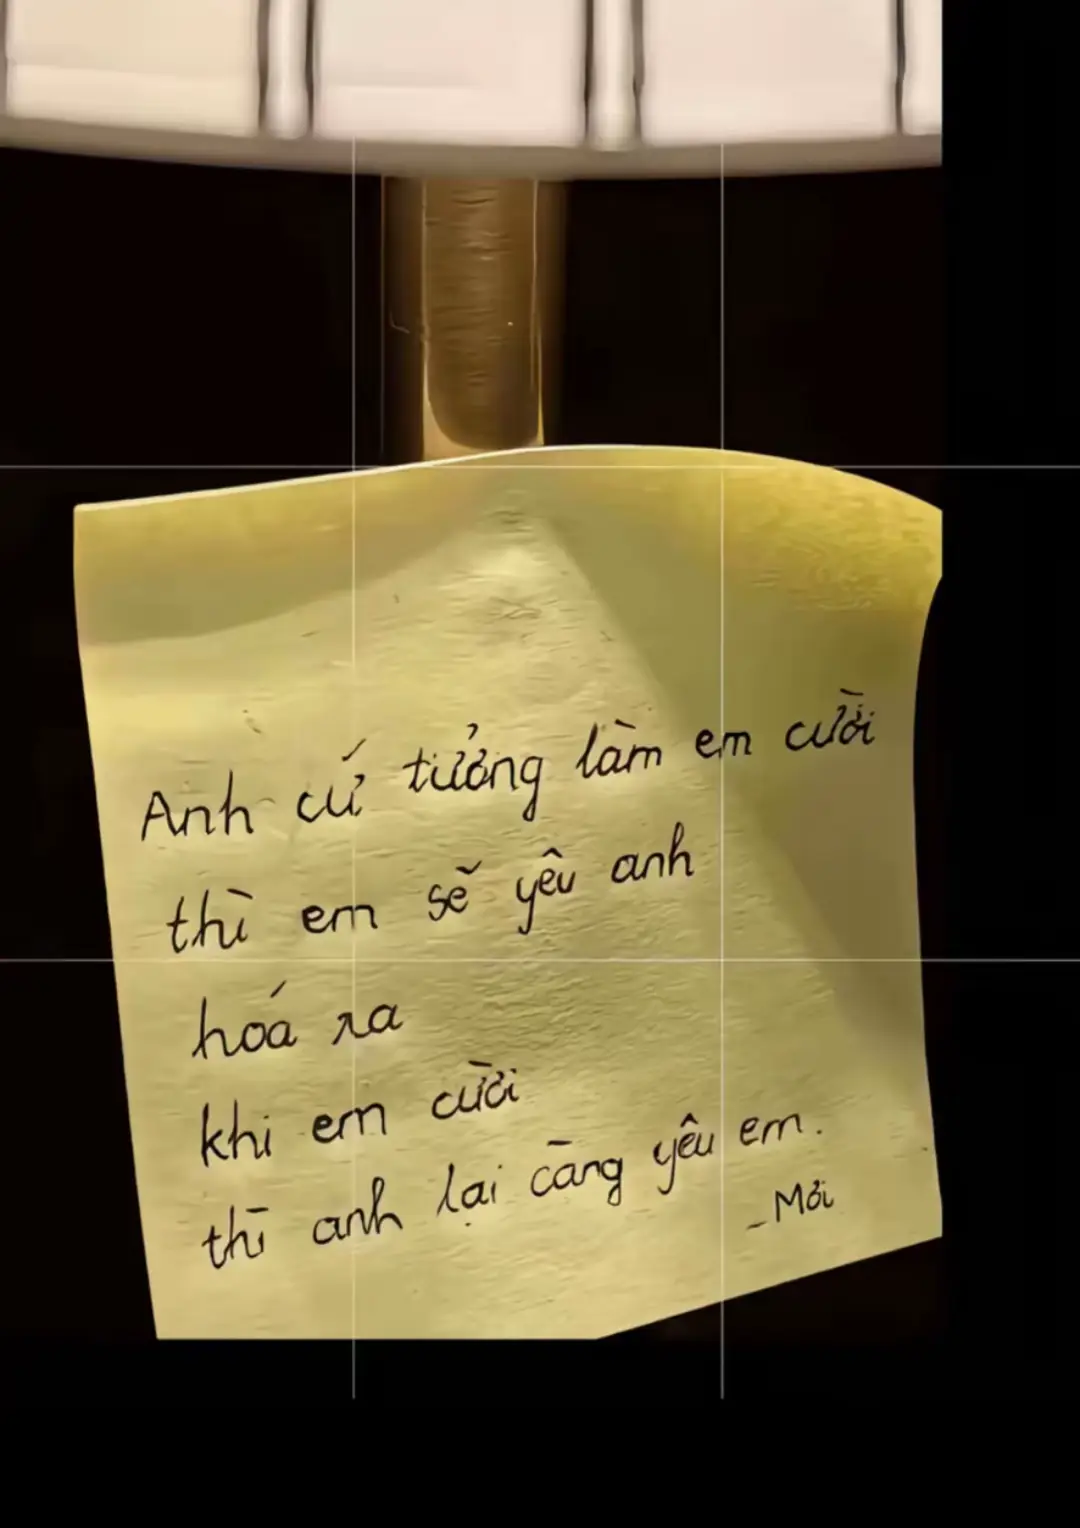 Anh cứ tưởng làm em cười
thì em sẽ yêu anh
hoá ra
khi em cười
thì anh lại càng yêu em.
_Mỏi